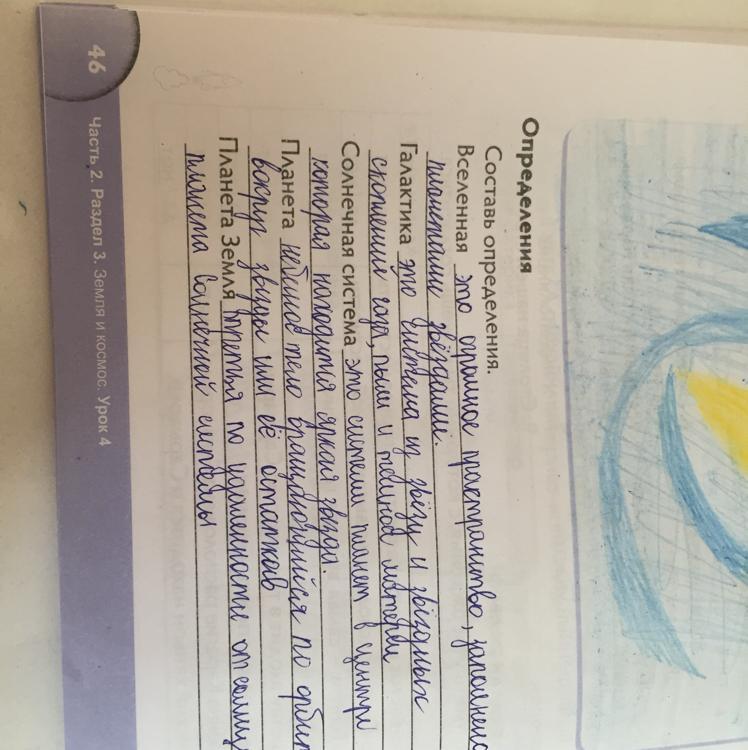 Определения
Составь определения.
Вселенная это огромное пространство,
планетами звёздами.
Галактика это система из звёзд и звёздных
скоплений газа, пыли и тёмной материи
Солнечная система это система планет в центре
которая находится яркая звезда.
Планета небесное тело вращающийся по
вокруг звезды или её остатков
Планета Земля третья по удаленности от
планета Солнечной системы
46
Часть 2. Раздел 3. Земля и космос. Урок 4